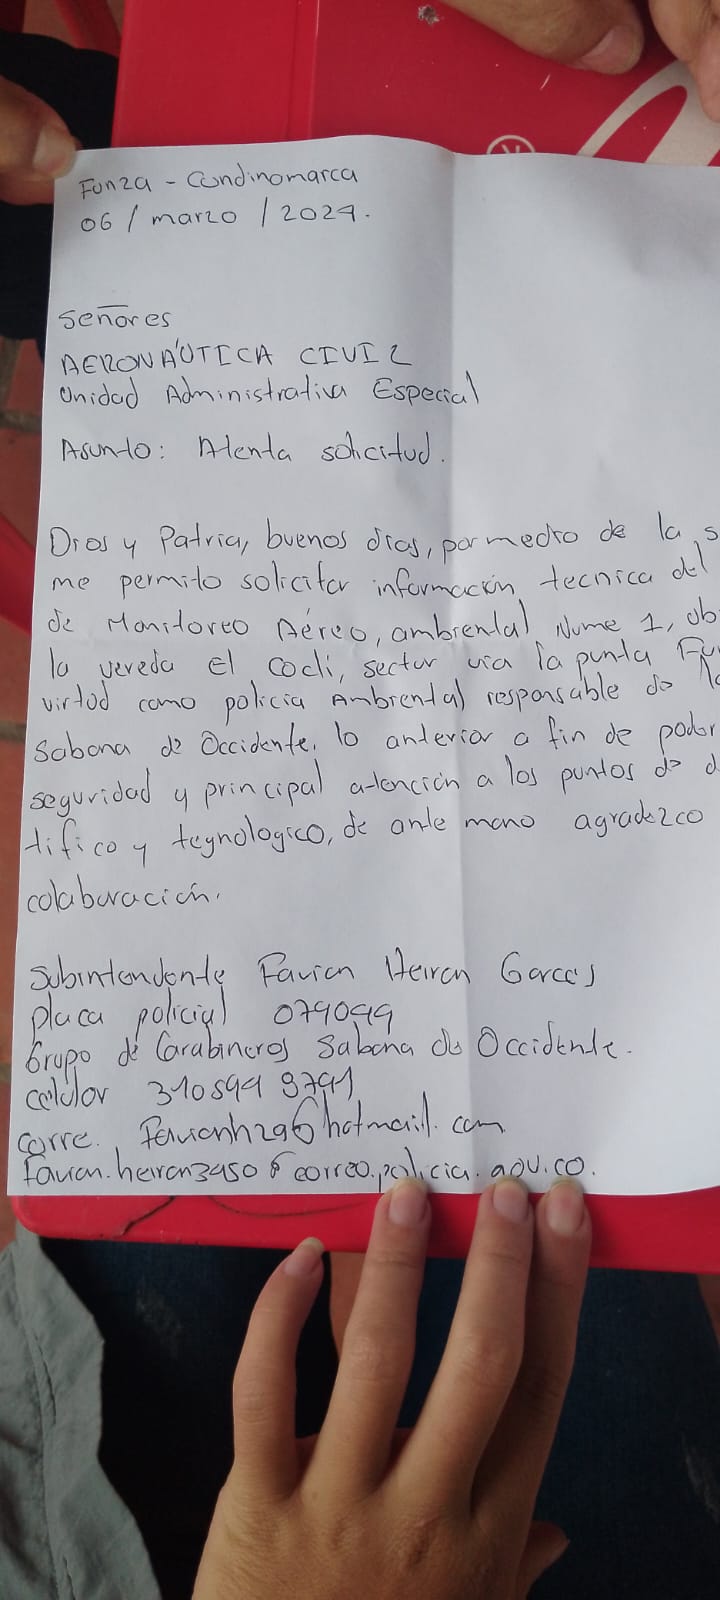 Funza - Cundinamarca
06 / marzo / 2024.
Señores
AERONAÚTICA CIVIL
Unidad Administrativa Especial
Asunto: Atenta solicitud.
Dios y Patria, buenos dias, por medio de la s
me permito solicitar información tecnica del
de Monitoreo Aéreo, ambiental Nume 1, ub
la vereda El cocli, sector via la punta Fu
virtud como policia Ambiental responsable de la
Sabana de Occidente, lo anterior a fin de poder
seguridad y principal atención a los puntos de d
tifico y tegnologico, de ante mano agradezco
colaboración.
Subintendente Favian Heiran Garces
placa policial 079099
Grupo de Carabineros Sabana de Occidente.
celular 310599 9791
corre. Favianh296@hotmail.com
favian.heiran3450@correo.policia.gov.co.